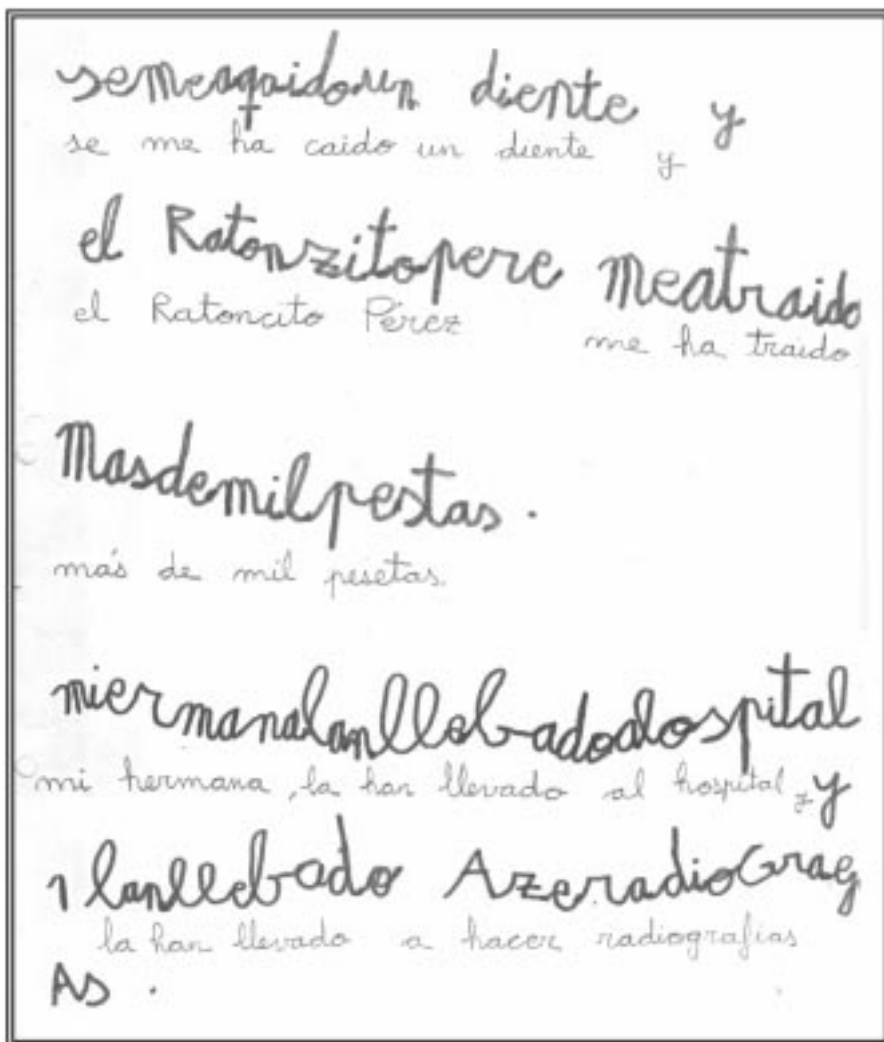 semeaqaido un diente y
se me ha caido un diente y
el Ratonzitopere meatraido
el Ratoncito Pérez me ha traido
Masdemilpestas.
más de mil pesetas.
miermanalanllebadoalospital
mi hermana, la han llevado al hospital, y
lanllebado Azeradiograf
la han llevado a hacer radiografias
As.